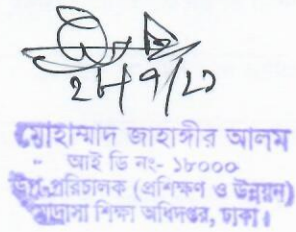 মোহাম্মাদ জাহাঙ্গীর আলম
আই ডি নং- ১৮০০০
উপ-পরিচালক (প্রশিক্ষণ ও উন্নয়ন)
মাদ্রাসা শিক্ষা অধিদপ্তর, ঢাকা।